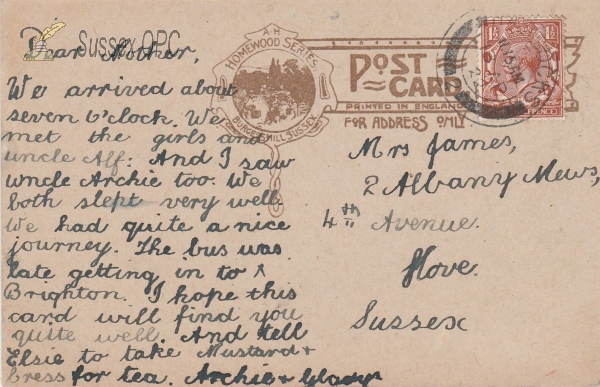 Sussex OPC
Dear Mother,
We arrived about
seven o'clock. We
met the girls and
uncle Alf. And I saw
uncle Archie too. We
both slept very well
We had quite a nice
journey. The bus was
late getting in to
Brighton. I hope this
card will find you
quite well. And tell
Elsie to take Mustard +
Cress for tea. Archie + Gladys
A H
HOMEWOOD SERIES
BURGESS HILL SUSSEX
POST
CARD
PRINTED IN ENGLAND
FOR ADDRESS ONLY.
Mrs James,
2 Albany Mews,
4th Avenue.
Hove.
Sussex